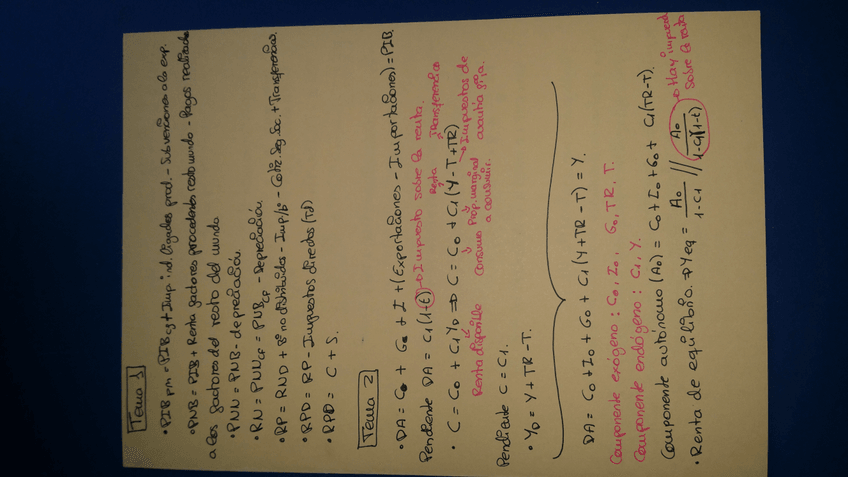 Tema 1
• PIB pm = PIB cf + Imp ind. ligados prod. - Subvenciones a la exp.
• PNB = PIB + Renta factores procedentes resto mundo - Pagos realizados
a los factores del resto del mundo
• PNN = PNB - depreciación.
• RN = PNN CP = PNB CP - Depreciación
• RP = RND + Bº no distribuidos - Imp/bº - Cotiz. Seg. Soc. + Transferencias.
• RPD = RP - Impuestos directos (Td)
• RPD = C + S.
Tema 2
• DA = C0 + G0 + I + (Exportaciones - Importaciones) = PIB.
Pendiente DA = C1 (1-t) → Impuesto sobre la renta.
Renta Transferencias
• C = C0 + C1 YD ⇒ C = C0 + C1 (Y - T + TR)
Renta disponible consumo Prop. marginal a consumir. → Impuestos de cuantía fija.
Pendiente C = C1.
• YD = Y + TR - T.
DA = C0 + I0 + G0 + C1 (Y + TR - T) = Y.
Componente exógeno: C0, I0, G0, TR, T.
Componente endógeno: C1, Y.
Componente autónomo (A0) = C0 + I0 + G0 + C1 (TR - T).
• Renta de equilibrio. → Yeq = A0 / 1 - C1 // A0 / 1 - C1(1-t) → Hay impuesto sobre la renta